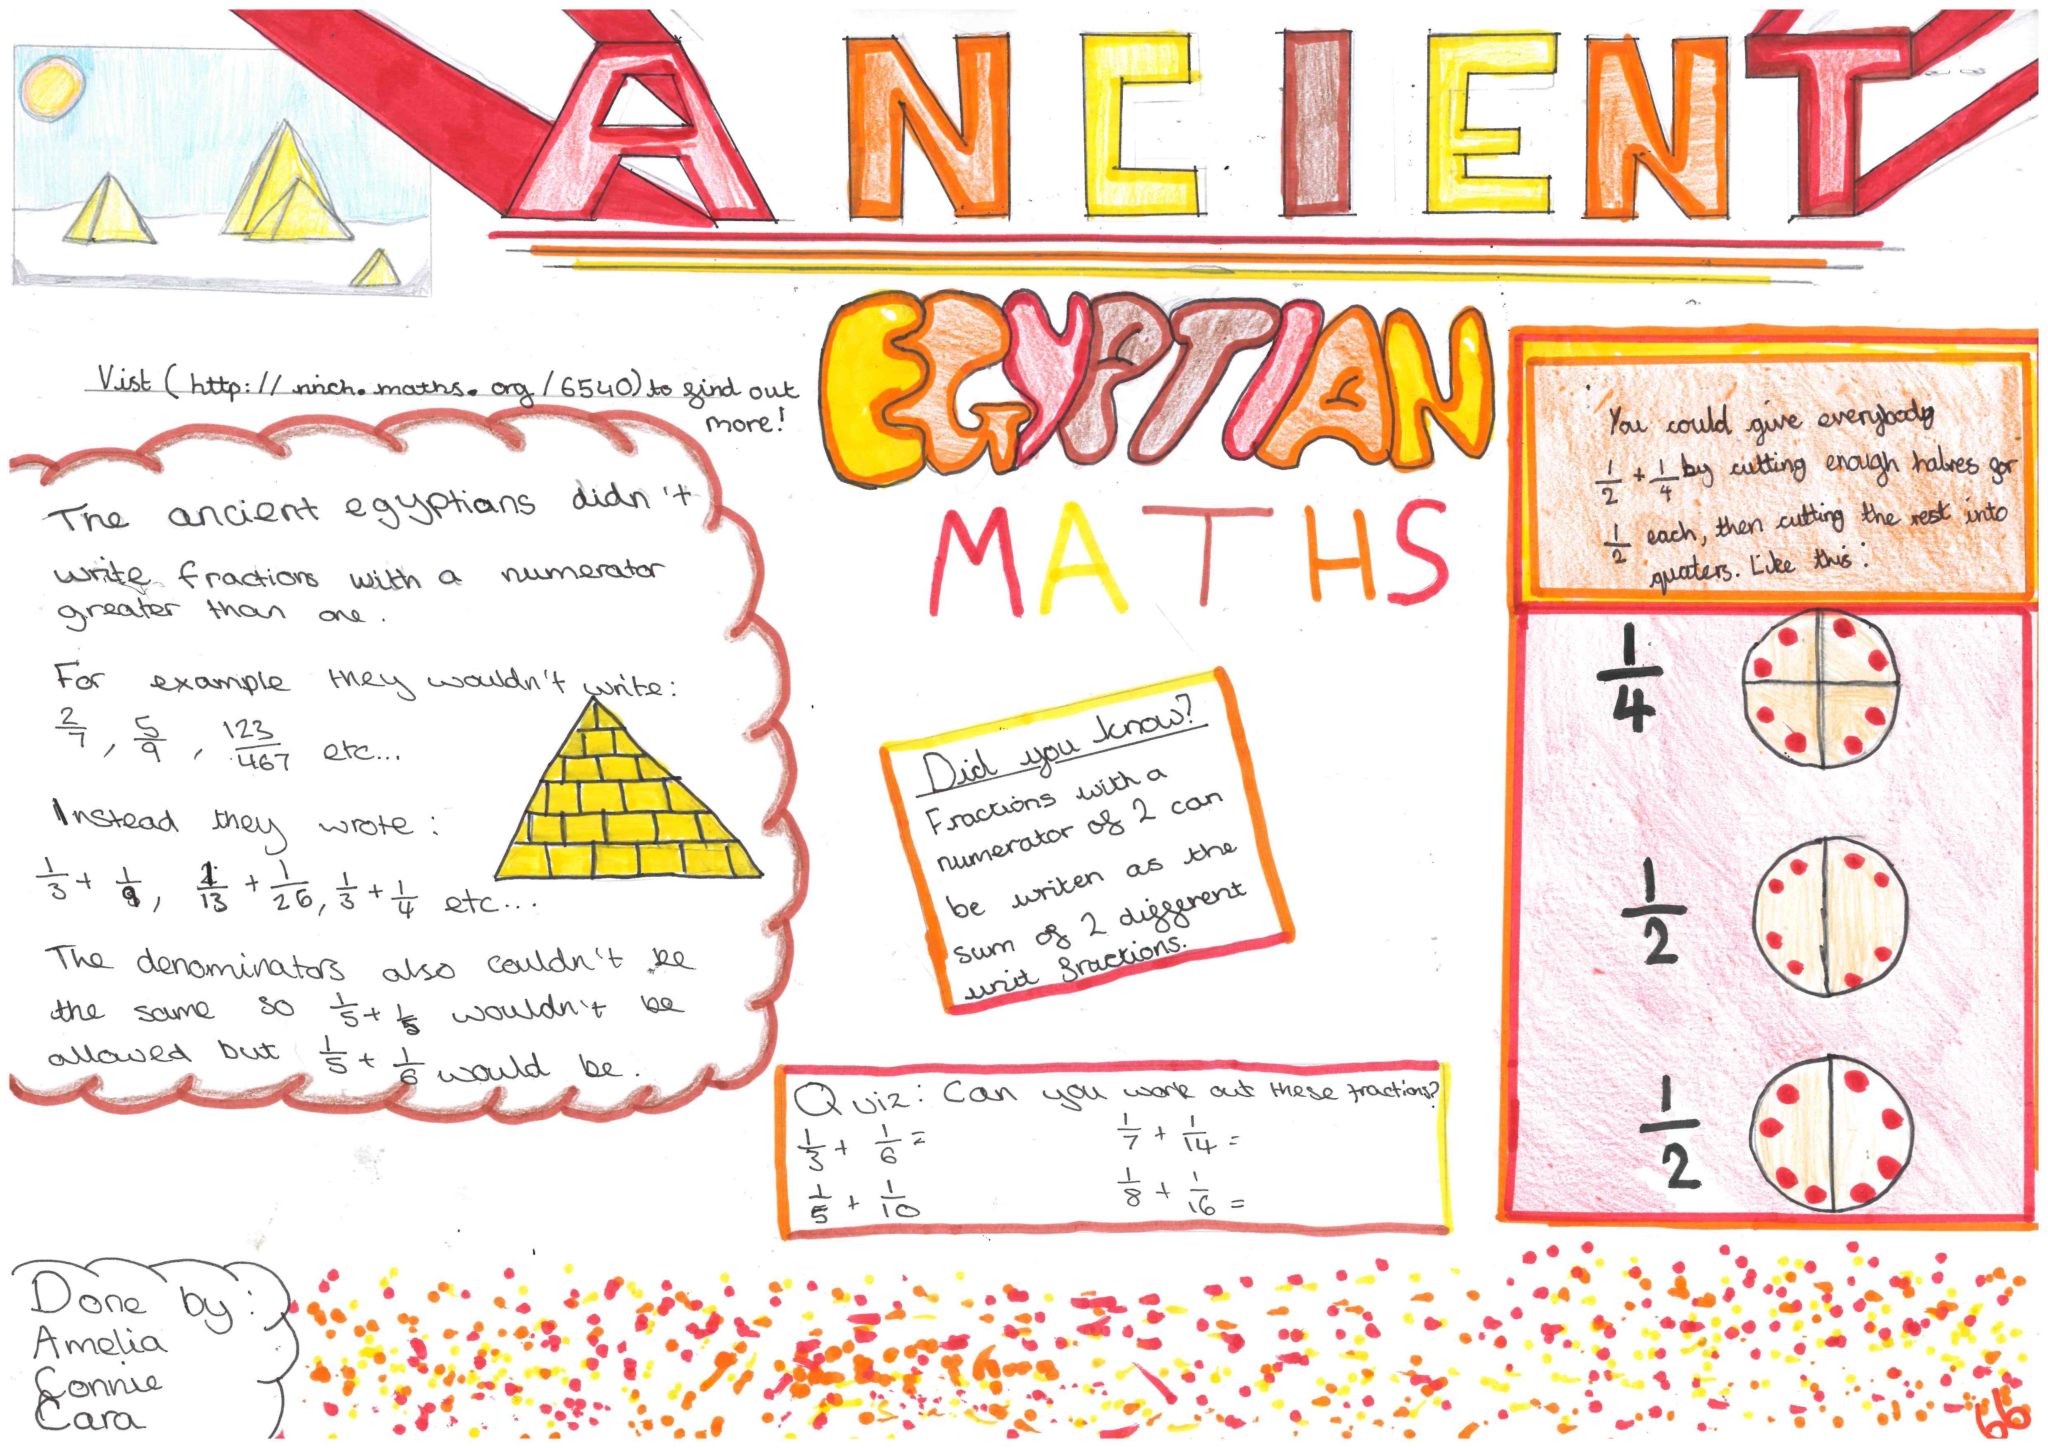 ANCIENT
EGYPTIAN
MATHS
Vist (http://nrich.maths.org/6540) to find out
more!
The ancient egyptians didn't
write fractions with a numerator
greater than one.
For example they wouldn't write:
2/7, 5/9, 123/467 etc...
Instead they wrote:
1/3 + 1/9, 1/13 + 1/26, 1/3 + 1/4 etc...
The denominators also couldn't be
the same so 1/5 + 1/5 wouldn't be
allowed but 1/5 + 1/6 would be.
Did you know?
Fractions with a
numerator of 2 can
be writen as the
sum of 2 different
unit fractions.
Quiz: Can you work out these fractions?
1/3 + 1/6 = 1/7 + 1/14 =
1/5 + 1/10 1/8 + 1/16 =
You could give everybody
1/2 + 1/4 by cutting enough halves for
1/2 each, then cutting the rest into
quaters. Like this:
1/4
1/2
1/2
Done by:
Amelia
Connie
Cara
66